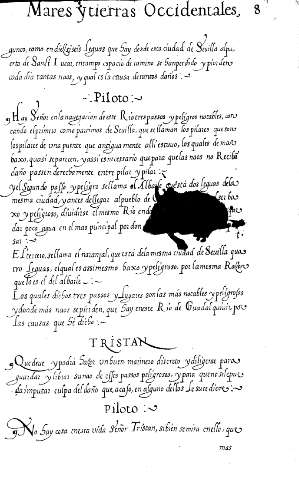 Mares y tierras Occidentales. 8
gunos, como en diez y seis leguas que hay desde esta ciudad de Sevilla al pu
erto de Sanct Lucar, en tampo espacio de camino se han perdido y pierden
cada dia tantas naos, y qual es la causa de tantos daños.
Piloto
Hay Señor en la navegacion deste Rio tres passos y peligros notables, con
tando el primero como partimos de Sevilla, que se llaman los pilares que son
los pilares de una puente que antiguamente alli estavo, los quales de mar
baxo, quasi se parecen, y assi es necessario que para que las naos no Reciban
daño passen derechamente entre pilar y pilar.
y el Segundo passo y peligro se llama el Albayle que está dos leguas desta
mesma ciudad, y antes de llegar al pueblo de
xo y peligroso, dividirse el mesmo Rio en
das poca agua en el mas principal por don
sar
El tercero, se llama el naranjal, que está desta mesma ciudad de Sevilla quatro
Leguas, el qual es assimesmo baxo y peligroso, por la mesma Razon
que lo es el del albaile.
Los quales dichos tres passos y lugares son los mas notables y peligrosos
y donde mas naos se pierden, que hay en este Rio de Guadalquivir por
las causas que he dicho.
TRISTAN
Que dixe y podia Señor un buen marinero discreto y diligente para
guardar y librar su nao de essos passos peligrosos, y para que no se le pue
da imputar culpa del daño que, acaso, en alguno dellos le sucediere.
Piloto
No hay cosa en esta vida Señor Tristan, si bien se mira en ello, que
mas